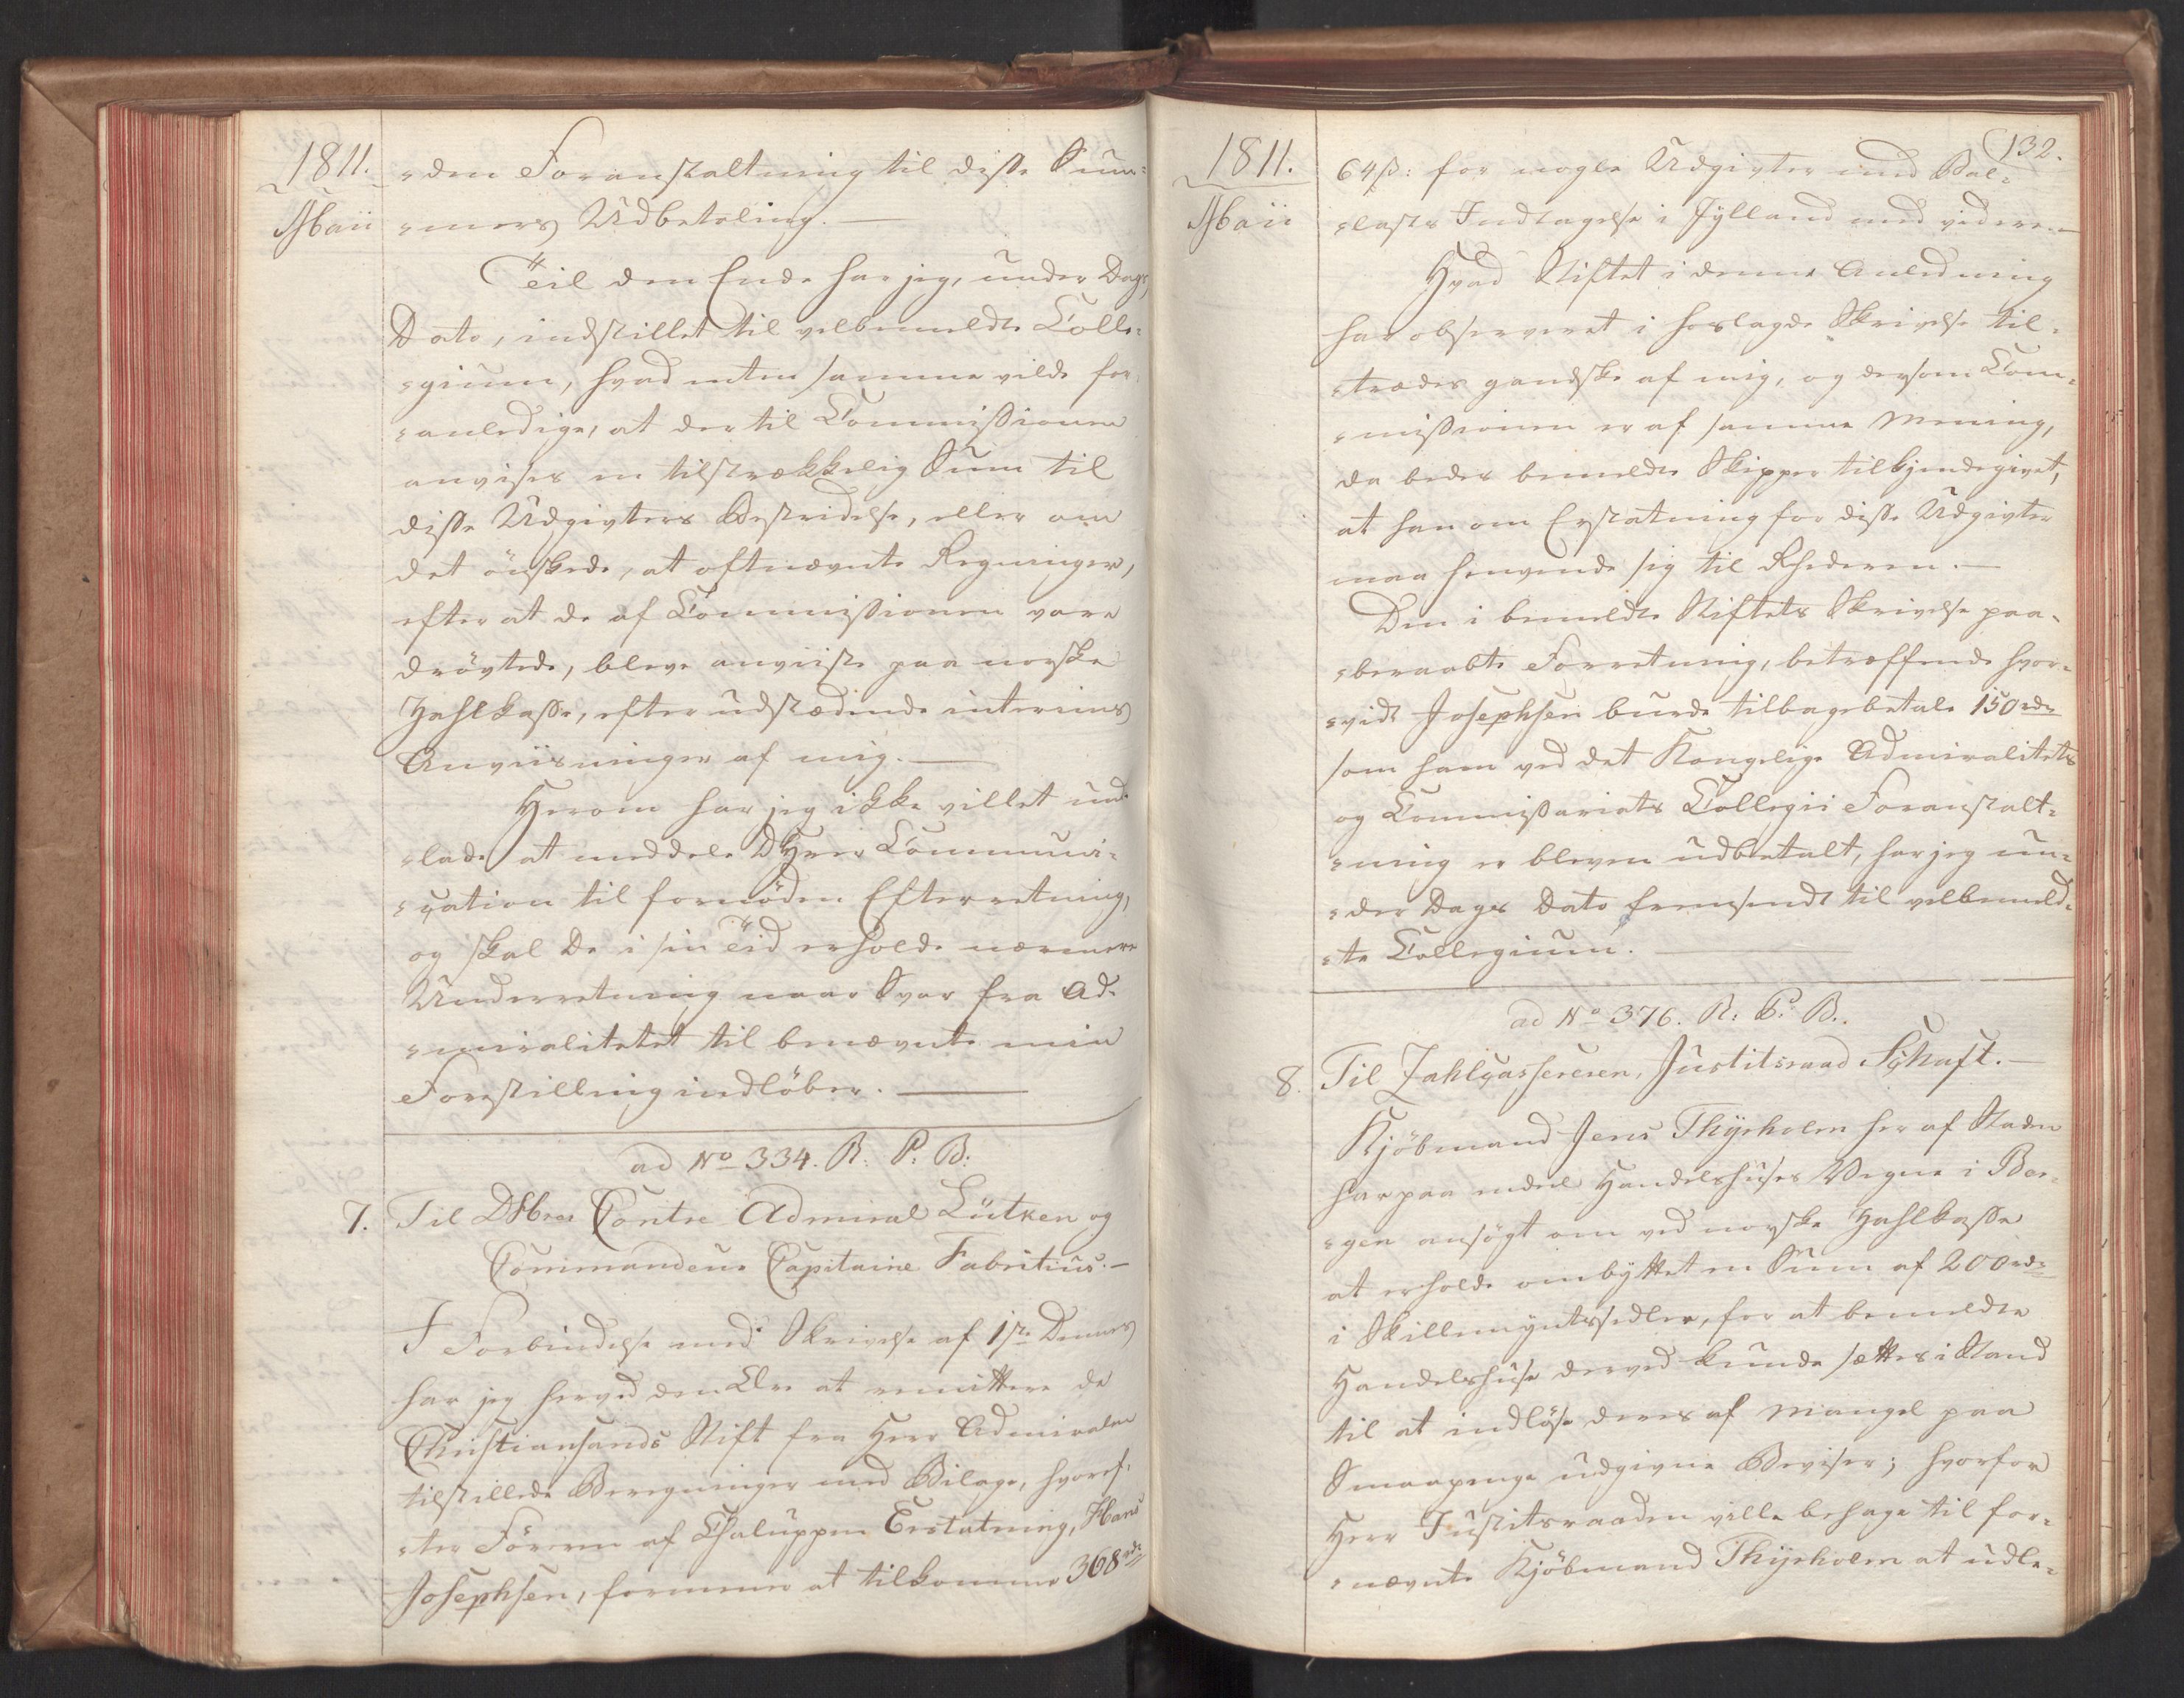 1811.
Maii
=den Foranstaltning til disse Sum=
=mers Udbetaling.
Til den Ende har jeg, under Dags
Dato, indstillet til velbemeldte Colle=
=gium, hvad enten samme vilde for=
=anledige, at der til Commissionen
anvises en tilstrækkelig Sum til
disse Udgivters Bestridelse, eller om
det önskede, at oftnævnte Regninger,
efter at de af Commissionen vare
drövtede, bleve anviiste paa norske
Zahlkasse, efter udstædende interims
Anviisninger af mig.
Herom har jeg ikke villet und=
=lade at meddele DHerr Communi=
=cation til fornöden Efterretning,
og skal De i sin Tid erholde nærmere
Underretning naar Svar fra Ad=
=miralitetet til benævnte min
Forestilling indlöber.
ad No 334. R: P. B:
7. Til DHrer Contre Admiral Lütken og
Commandeur Capitaine Fabritius.
I Forbindelse med Skrivelse af 1ste Dennes
har jeg herved den Ære at remittere de
Christiansands Stift fra Herr Admiralen
tilstillede Beregninger med Bilage, hvoref=
=ter Föreren af Chaluppen Erstatning, Hans
Josephsen, formener at tilkomme 368 rd
1811.
Maii
132.
64 ß: for nogle Udgivter med Bal=
=lasts Indtagelse i Jylland med videre.
Hvad Stiftet i denne Anledning
har observeret i hoslagde Skrivelse til=
=trædes gandske af mig, og dersom Com=
=missionen er af samme Mening,
da bedes bemeldte Skipper tilkjendegivet,
at han om Erstatning for disse Udgivter
maa henvende sig til Rhederen.
Den i bemeldte Stiftets Skrivelse paa=
=beraabte Forretning, betræffende hvor=
=vidt Josephsen burde tilbagebetale 150 rd
som ham ved det Kongelige Admiralitets
og Commissariats Collegii Foranstalt=
=ning er bleven udbetalt, har jeg un=
=der Dags Dato fremsendt til velbemeld=
=te Collegium.
ad No 376. R: P. B.
8. Til Zahlcassereren, Justitsraad Schaft.
Kjöbmand Jens Thyrholm her af Staden
har paa endeel Handelshuses Vegne i Ber=
=gen ansögt om ved norske Zahlkasse
at erholde ombyttet en Sum af 200 rd
i Skillemyntssedler, for at bemeldte
Handelshuse derved kunde sættes i Stand
til at indlöse deres af Mangel paa
Smaapenge udgivne Beviser; hvorfor
Herr Justitsraaden ville behage til for=
=nævnte Kjöbmand Thyrholm at udle=